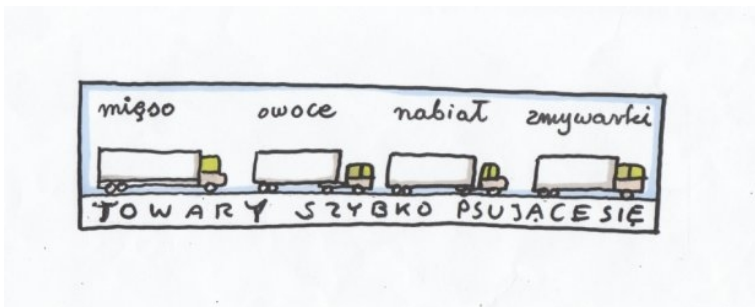 mięso owoce nabiał zmywarki
TOWARY SZYBKO PSUJĄCE SIĘ